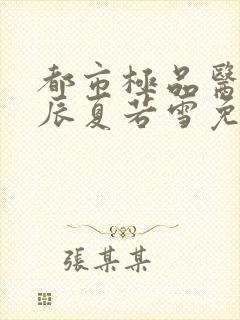 都市極品醫
辰夏若雪免
張某某